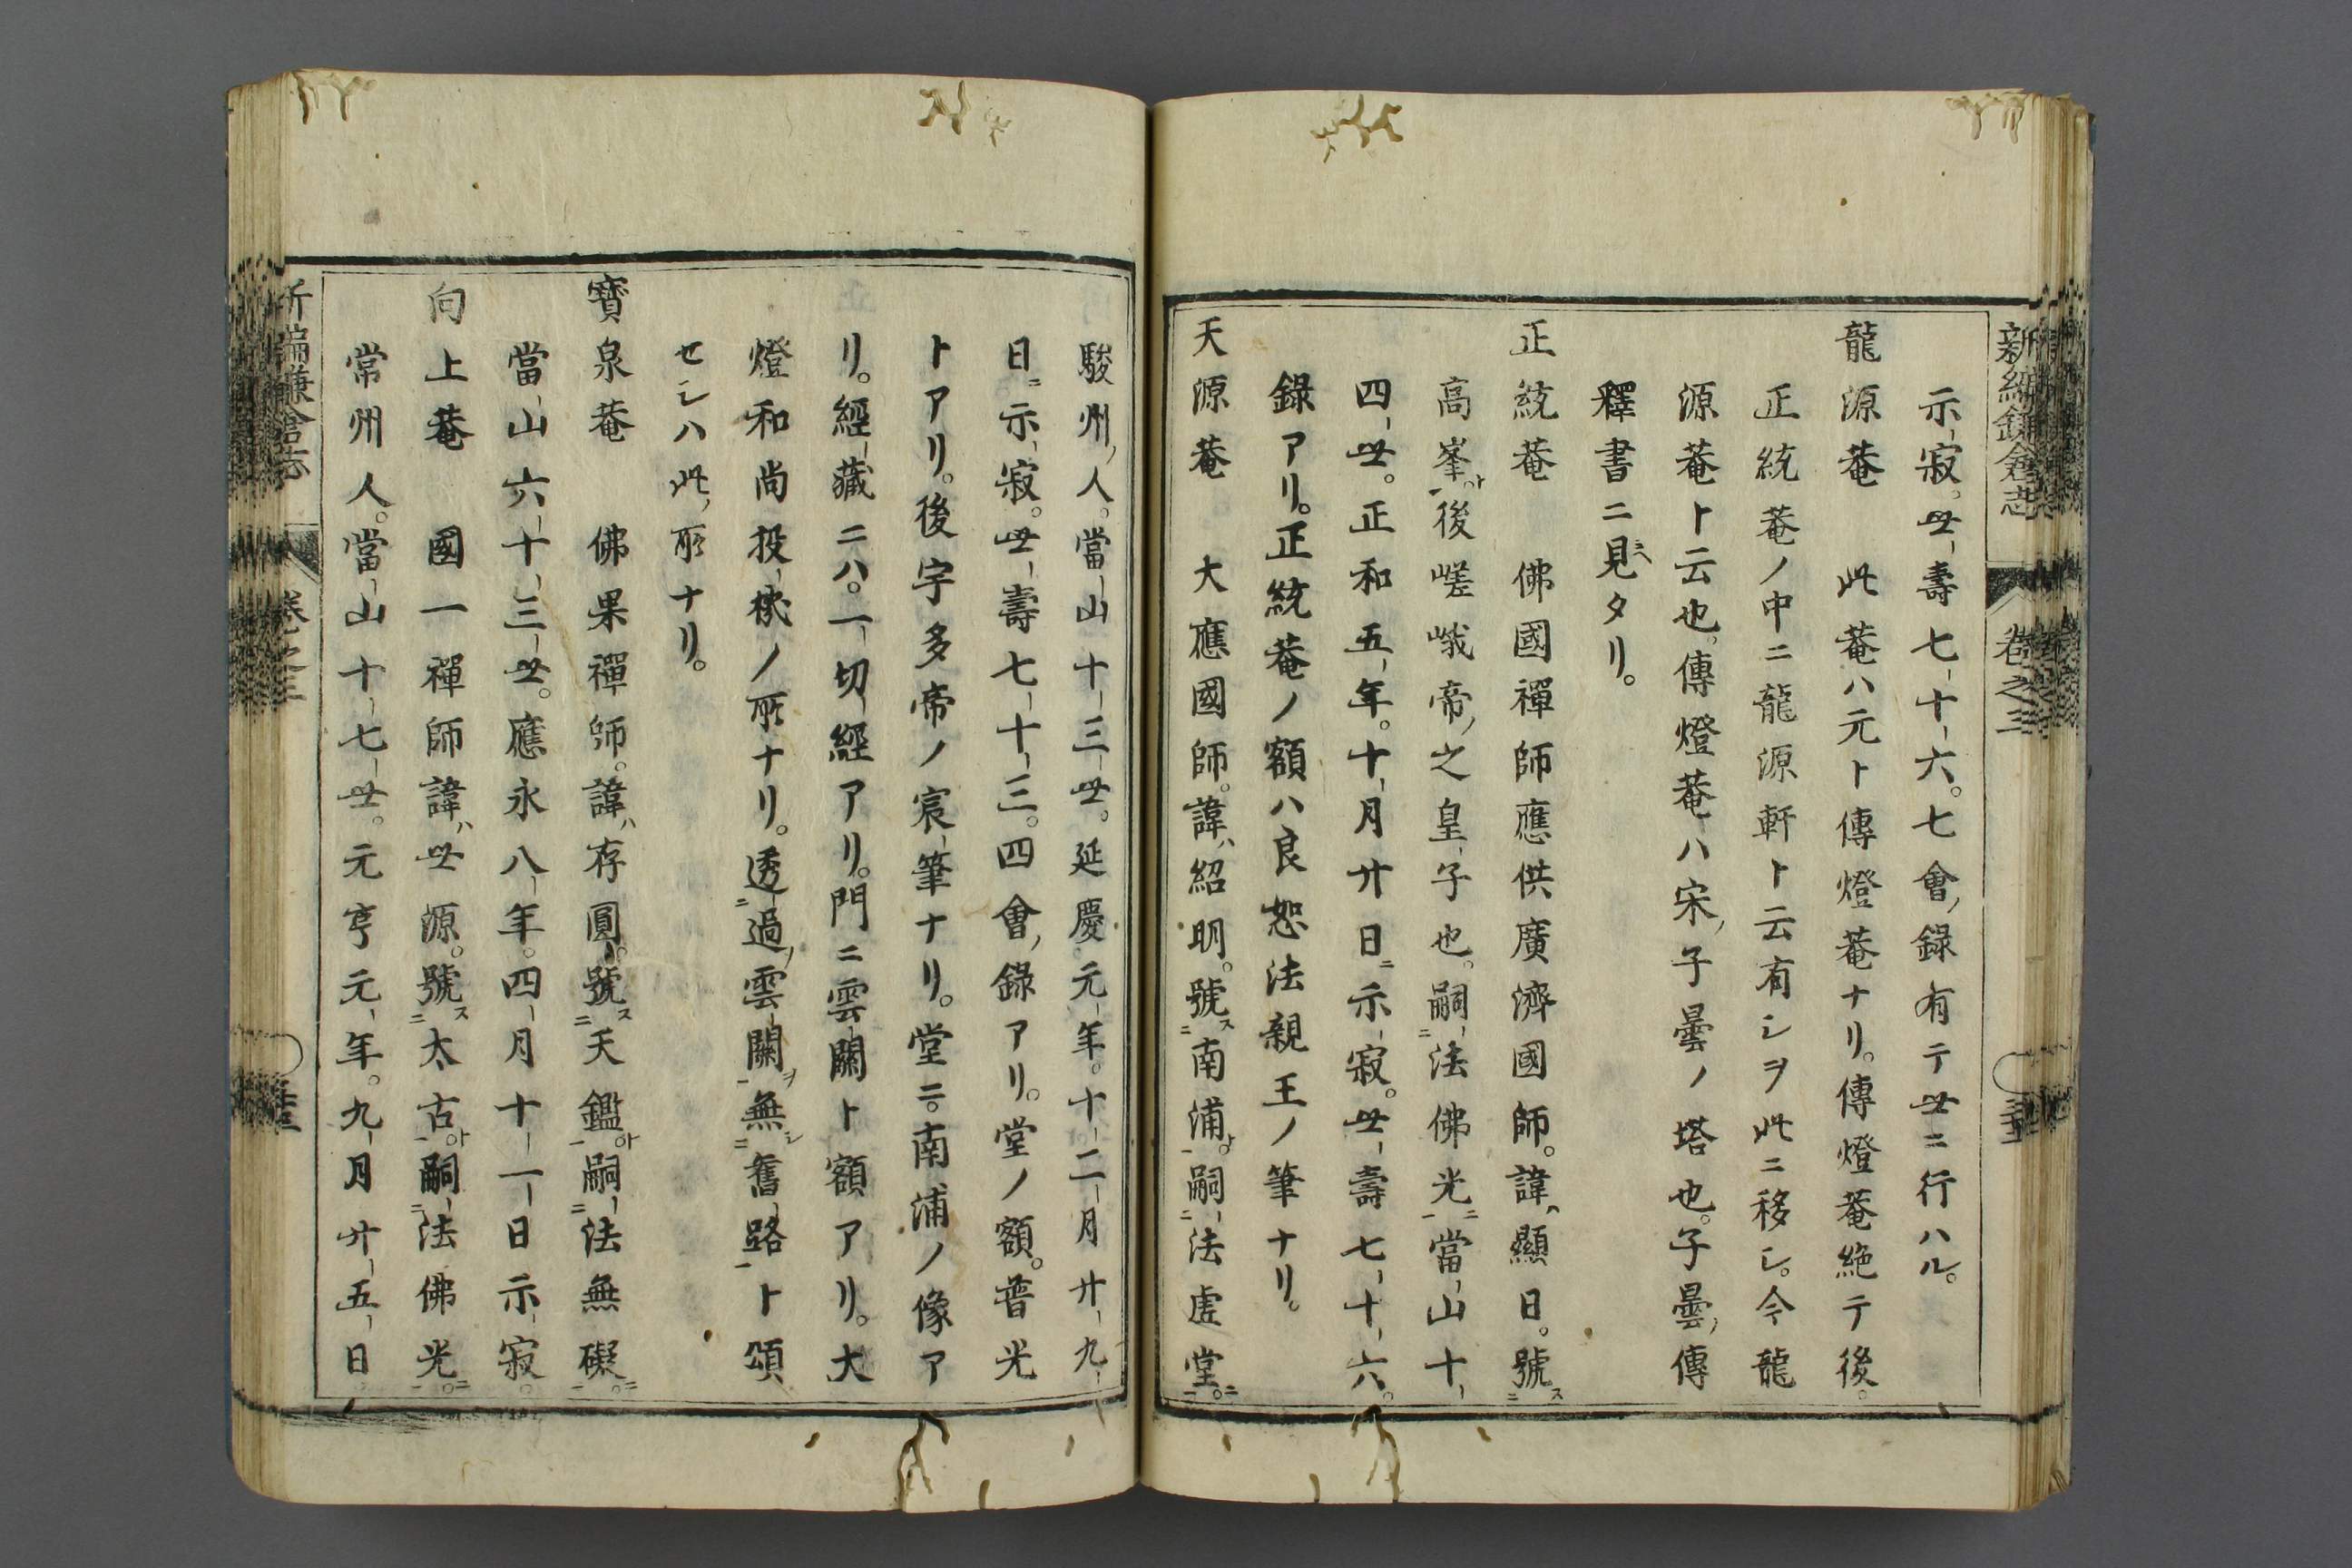 新編鎌倉志
卷之三
示寂。世壽七十六。七會ノ錄有テ世ニ行ハル。
龍源菴 此菴ハ元ト傳燈菴ナリ。傳燈菴絶テ後。
正統菴ノ中ニ龍源軒ト云有シヲ此ニ移シ。今龍
源菴ト云也。傳燈菴ハ宋ノ子曇ノ塔也。子曇ノ傳
釋書ニ見ヘタリ。
正統菴 佛國禪師應供廣濟國師。諱ハ顯日。號ス二
高峯ト一。後嵯峨帝ノ之皇子也。嗣二法佛光ニ一。當山十
四世。正和五年。十月廿日ニ示寂。世壽七十六。
錄アリ。正統菴ノ額ハ良恕法親王ノ筆ナリ。
天源菴 大應國師。諱ハ紹明。號ス二南浦ト一。嗣二法虚堂ニ一。
駿州ノ人。當山十三世。延慶元年。十二月廿九
日ニ示寂。世壽七十三。四會ノ錄アリ。堂ノ額。普光
トアリ。後宇多帝ノ宸筆ナリ。堂ニ。南浦ノ像ア
リ。經藏ニハ。一切經アリ。門ニ雲關ト額アリ。大
燈和尚投機ノ所ナリ。透二過ノ雲關ヲ一無シ二舊路一ト頌
セシハ此ノ所ナリ。
寶泉菴 佛果禪師。諱ハ存圓。號ス二天鑑ト一。嗣二法無礙ニ一。
當山六十三世。應永八年。四月十一日示寂。
向上菴 國一禪師諱ハ世源。號ス二太古ト一。嗣二法佛光ニ一。
常州人。當山十七世。元亨元年。九月廿五日。
新編鎌倉志
卷之三